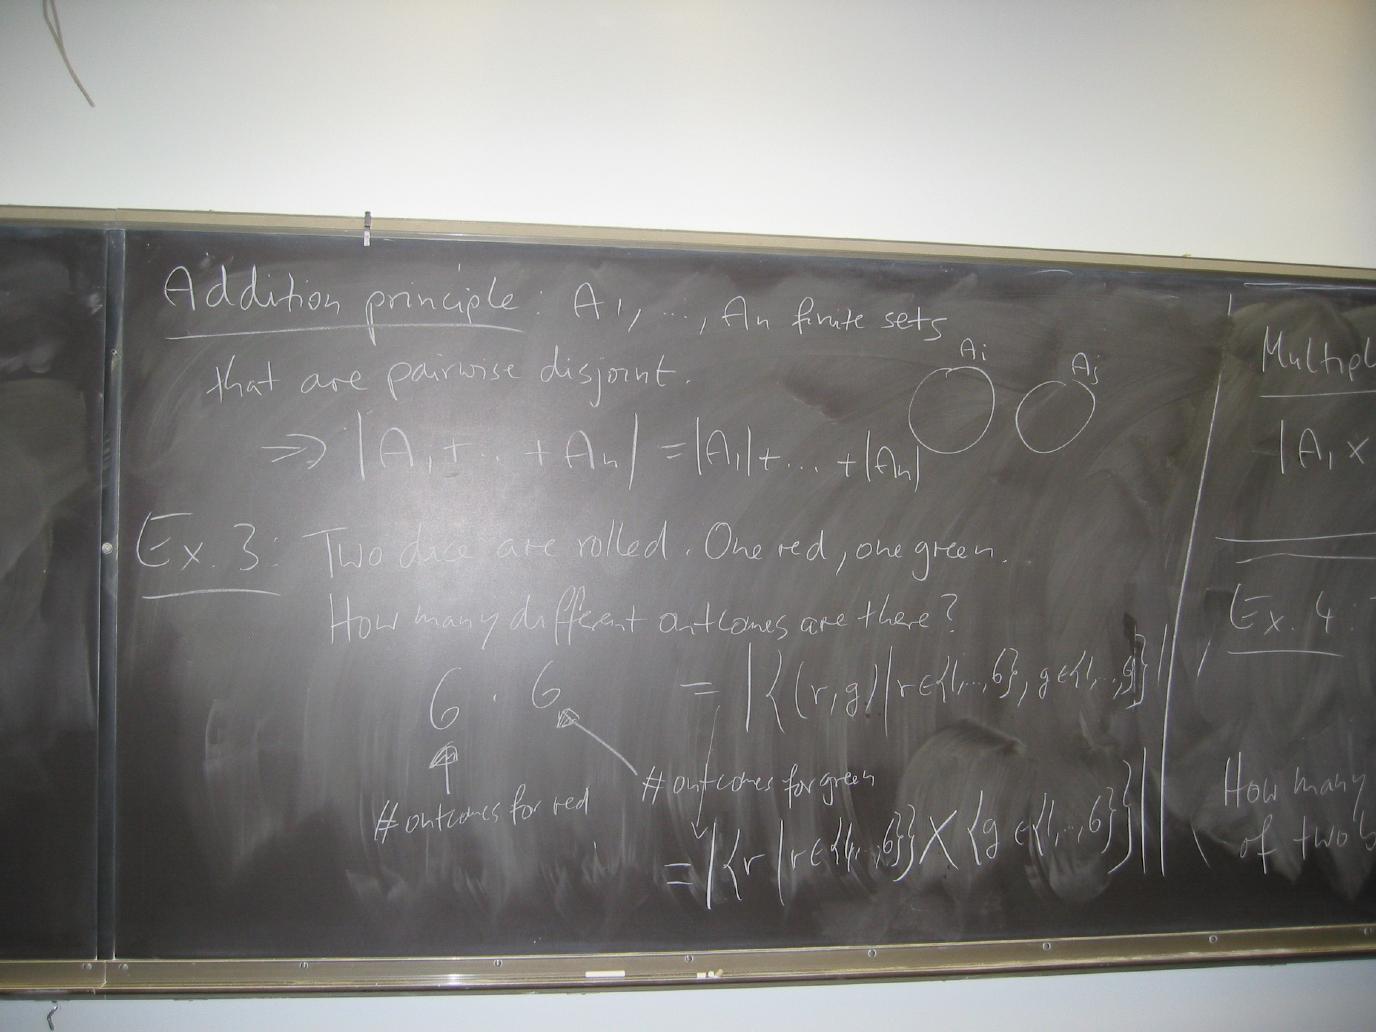 Addition principle: A1, ..., An finite sets
that are pairwise disjoint.
Ai
Aj
=> |A1 + ... + An| = |A1| + ... + |An|
Ex. 3: Two dice are rolled. One red, one green.
How many different outcomes are there?
6 · 6 = |{(r,g)|r∈{1,...,6}, g∈{1,...,g}|
# outcomes for red
# outcomes for green
= |{r|r∈{1,...,6}} X {g∈{1,...,6}}||
Multipl
|A1 x
Ex. 4:
How many
of two